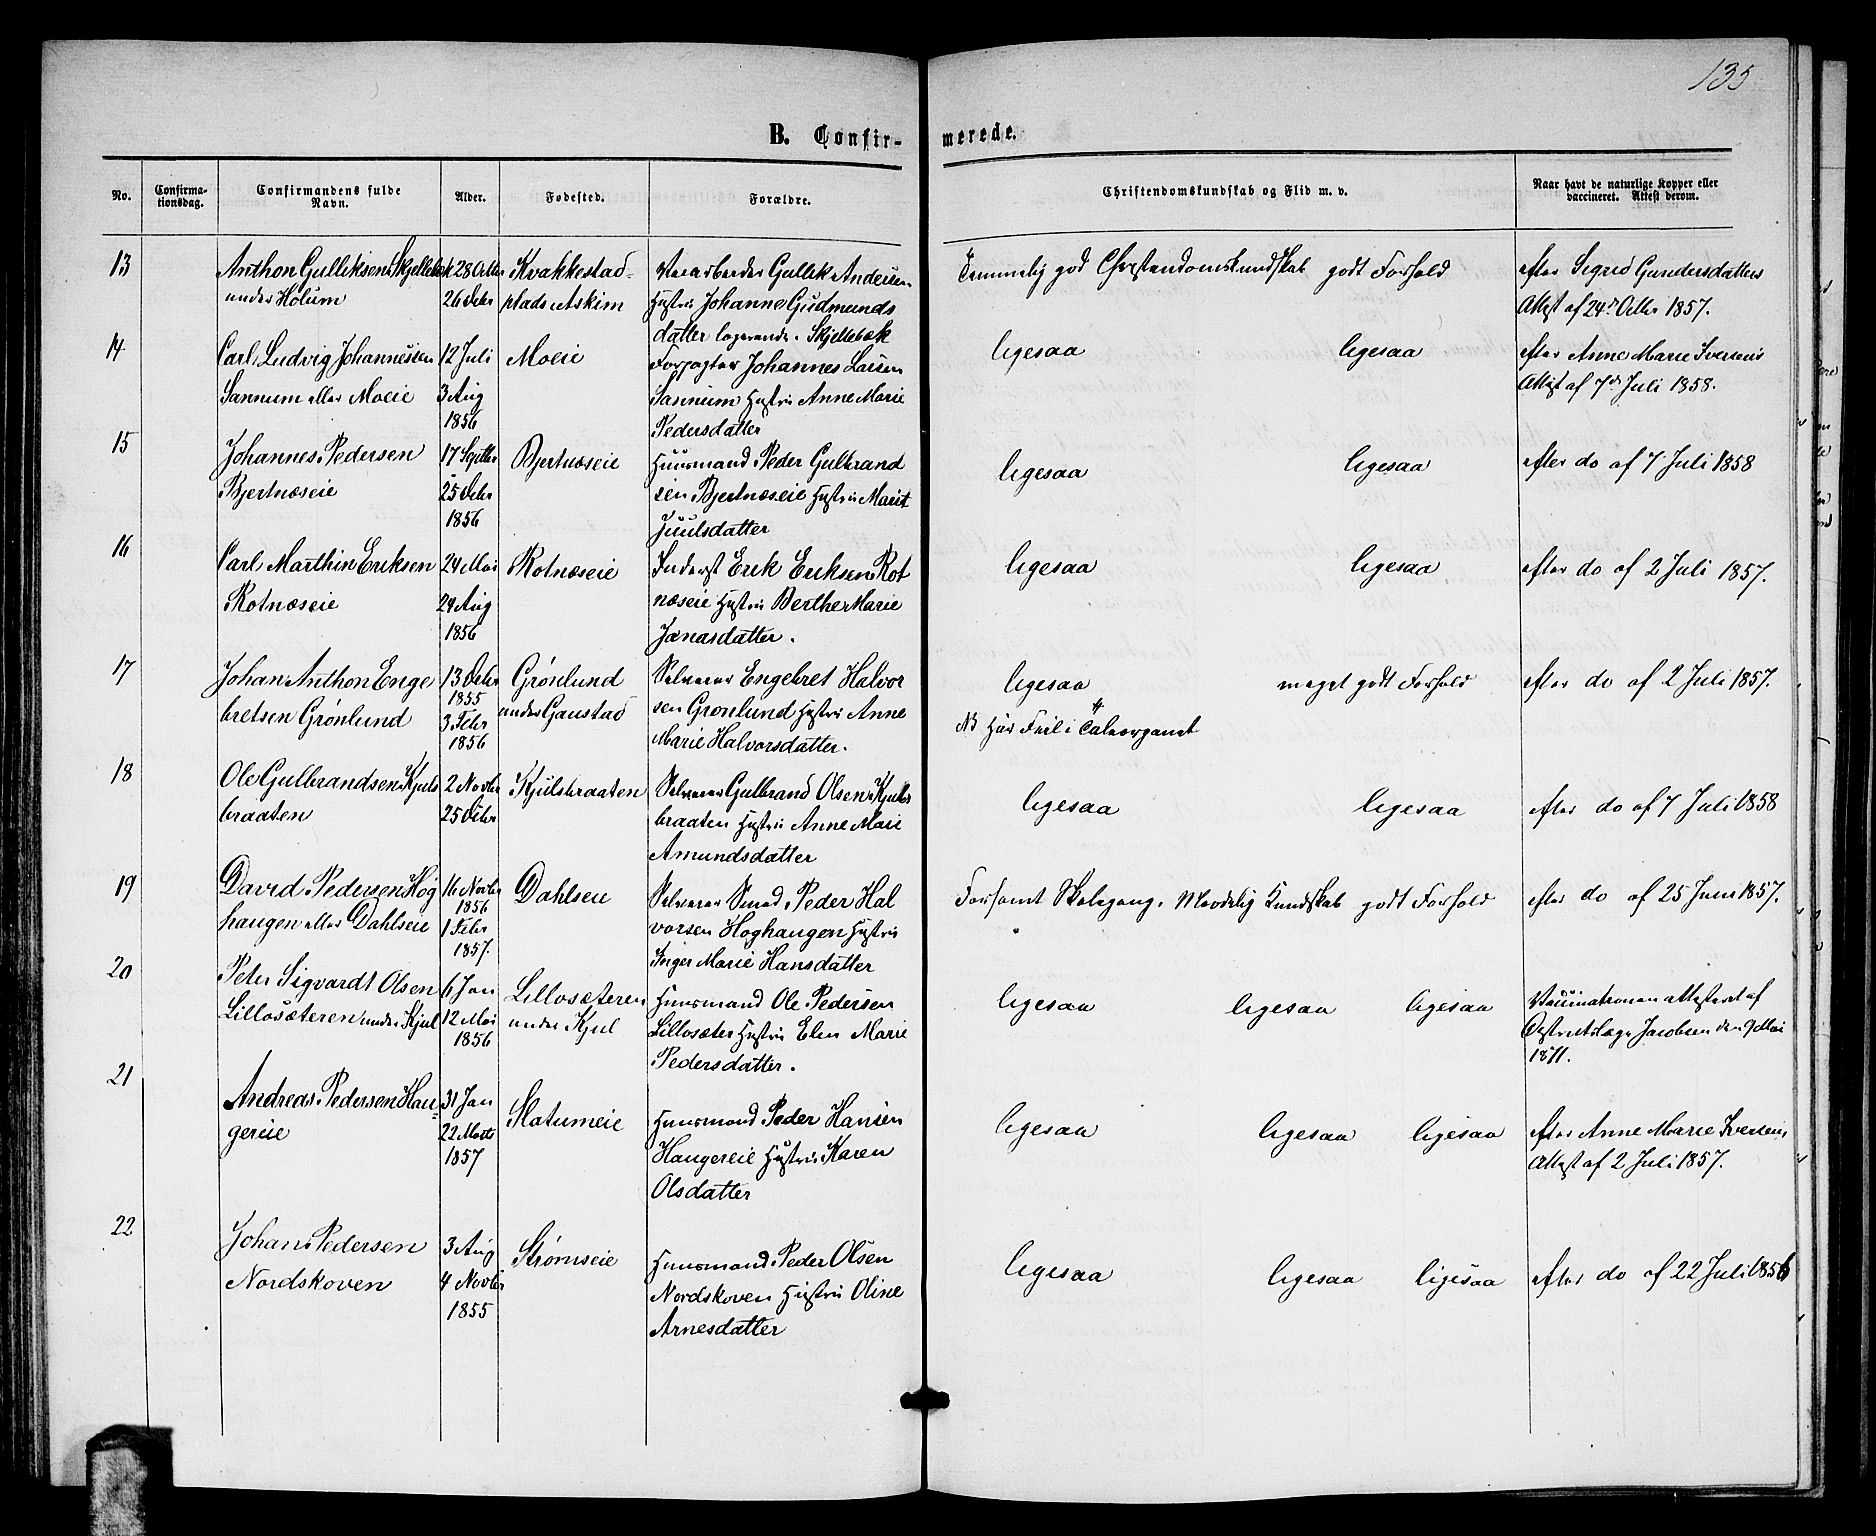 135
B. Confir- merede.
No. Confirma- tionsdag. Confirmandens fulde Navn. Alder. Fødested. Forældre. Christendomskundskab og Flid m. v. Naar havt de naturlige Kopper eller vaccineret. Attest derom.
13 Anthon Gulliksen Skjellebek 28 Octbr Kvakkestad- Gullik Andersen Temmelig god Christendomskundskab godt Forhold efter Sigrid Gundersdatters
under Holum 26 Debr plads Askim Hustru Johanne Gudmunds Attest af 24de Octbr 1857.
datter logerende. Skjellebæk
14 Carl Ludvig Johannessen 12 Juli Moeie Forpagter Johannes Larsen ligesaa ligesaa efter Anne Marie Iversens
Sannum eller Moeie 3 Aug Sannum Hustru Anne Marie Attest af 7de Juli 1858.
1856 Pedersdatter
15 Johannes Pedersen 17 Septbr Bjertnæseie Huusmand Peder Gulbrand ligesaa ligesaa efter do af 7 Juli 1858
Bjertnæseie 25 Debr sen Bjertnæseie Hustru Marit
1856 Juulsdatter
16 Carl Marthin Eriksen 24 Mai Rotnæseie Inderst Erik Eriksen Rot ligesaa ligesaa efter do af 2 Juli 1857.
Rotnæseie 24 Aug næseie Hustru Berthe Marie
1856 Jonasdatter.
17 Johan Anthon Enge 13 Debr Grønlund Selveier Engebret Halvor ligesaa meget godt Forhold efter do af 2 Juli 1857.
1855
bretsen Grønlund 3 Febr under Gaustad sen Grønlund Hustru Anne NB Har Feil i Taleorganet
1856 Marie Halvorsdatter.
18 Ole Gulbrandsen Kjuls 2 Novbr Kjulsbraaten Selveier Gulbrand Olsen Kjuls ligesaa ligesaa efter do af 7 Juli 1858
braaten 25 Debr braaten Hustru Anne Marie
Amundsdatter
19 David Pedersen Høg 16 Novbr Dahlseie Selveier Smed Peder Hal Forsømt Skolegang. Maadelig Kundskab godt Forhold efter do af 25 Juni 1857.
1856
haugen eller Dahlseie 1 Febr vorsen Høghaugen Hustru
1857. Inger Marie Hansdatter
20 Peter Sigvardt Olsen 6 Jan Lillosæteren Huusmand Ole Pedersen ligesaa ligesaa ligesaa Vaccinationen attesteret af
Lillosæteren under Kjul 12 Mai under Kjul Lillosæter Hustru Elen Marie Distriktslæge Jacobsen den 9 Mai
1856 Pedersdatter. 1871.
21 Andreas Pedersen Hau- 31 Jan Slatumeie Huusmand Peder Hansen ligesaa ligesaa ligesaa efter Anne Marie Iversens
gereie 22 Marts Haugereie Hustru Karen Attest af 2 Juli 1857.
1857 Olsdatter
22 Johan Pedersen 3 Aug Strømseie Huusmand Peder Olsen ligesaa ligesaa ligesaa efter do af 22 Juli 1856
Nordskoven 4 Novbr Nordskoven Hustru Oline
1855 Arnesdatter